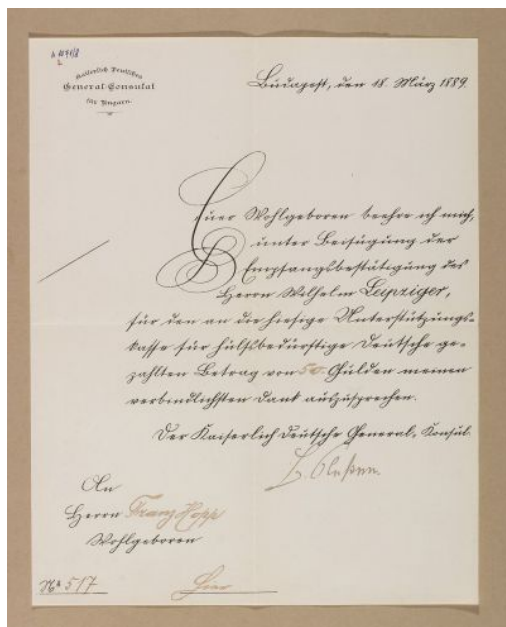 Kaiserlich Deutsches
General-Consulat
für Ungarn.
Budapest, den 18. März 1889.
Euer Wohlgeboren beehre ich mich,
unter Beifügung der
Empfangsbestätigung des
Herrn Wilhelm Leipziger,
für den an die hiesige Unterstützungs-
kasse für hülfsbedürftige Deutsche ge-
zahlten Betrag von 50 Gulden meinen
verbindlichsten Dank auszusprechen.
Der Kaiserlich Deutsche General-Konsul.
An
Herrn Franz Hopp
Wohlgeboren
No 517
Hier